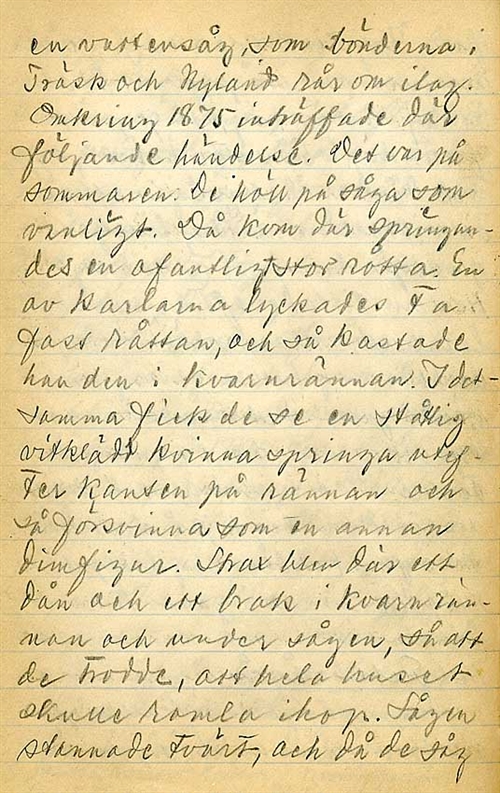 en vattensåg, som bönderna i
Träsk och Nyland rår om ilag.
Omkring 1875 inträffade där
följande händelse. Det var på
sommaren. De höll på såga som
vanligt. Då kom där springan-
des en ofantligt stor råtta. En
av karlarna lyckades ta
fast råttan, och så kastade
han den i kvarnrännan. I det-
samma fick de se en ståtlig
vitklädd kvinna springa utef-
ter kanten på rännan och
så försvinna som en annan
dimfigur. Strax blev där ett
dån och ett brak i kvarnrän-
nan och under sågen, så att
de trodde, att hela huset
skulle ramla ihop. Sågen
stannade tvärt, och då de såg